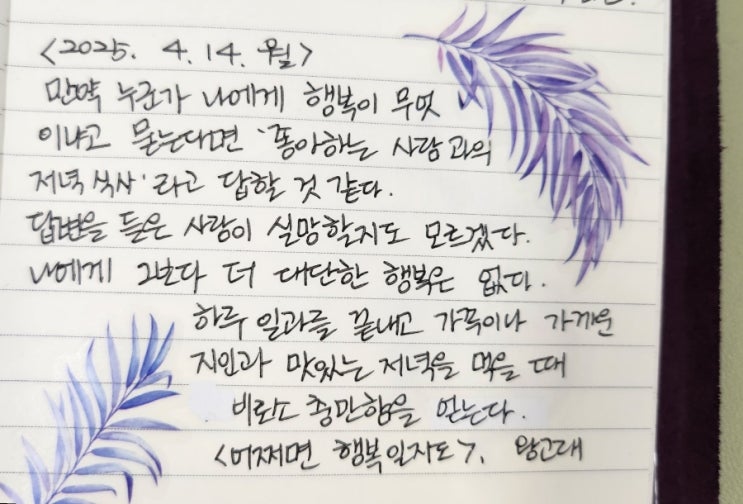 <2025. 4. 14. 월>
만약 누군가 나에게 행복이 무엇
이냐고 묻는다면 '좋아하는 사람과의
저녁식사' 라고 답할 것 같다.
답변을 들은 사람이 실망할지도 모르겠다.
나에게 그보다 더 대단한 행복은 없다.
하루 일과를 끝내고 가족이나 가까운
지인과 맛있는 저녁을 먹을 때
비로소 충만함을 얻는다.
<어쩌면 행복일지도>, 왕고래